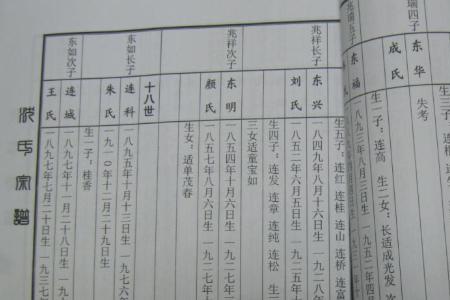 瑞四子
东华
失考
成氏
生一子：连高 生二女：长适成光发 次
东福
一八九三年八月三日生 一九五二年四
兆祥长子
东兴
一八四九年八月十六日生 一九二八年
生五子：连红 连桂 连山 连桥 连富
刘氏
一八五二年六月五日生 一九二五年
兆祥次子
生四子：连发 连章 连纯 连松 生三
三女适童宝如
东明
一八五四年十月六日生 一九二七年
颜氏
一八五七年八月六日生 一九二七年十
生女：适单茂春
十八世
东如长子
连科
一八九五年十月十三日生 一九七六年
朱氏
一九一〇年十二月二十九日生
东如次子
生一子：桂香
连城
一八九七年十一月二十八日生 一九六
王氏
一八九七年七月二十日生 一九三七
氏宗谱